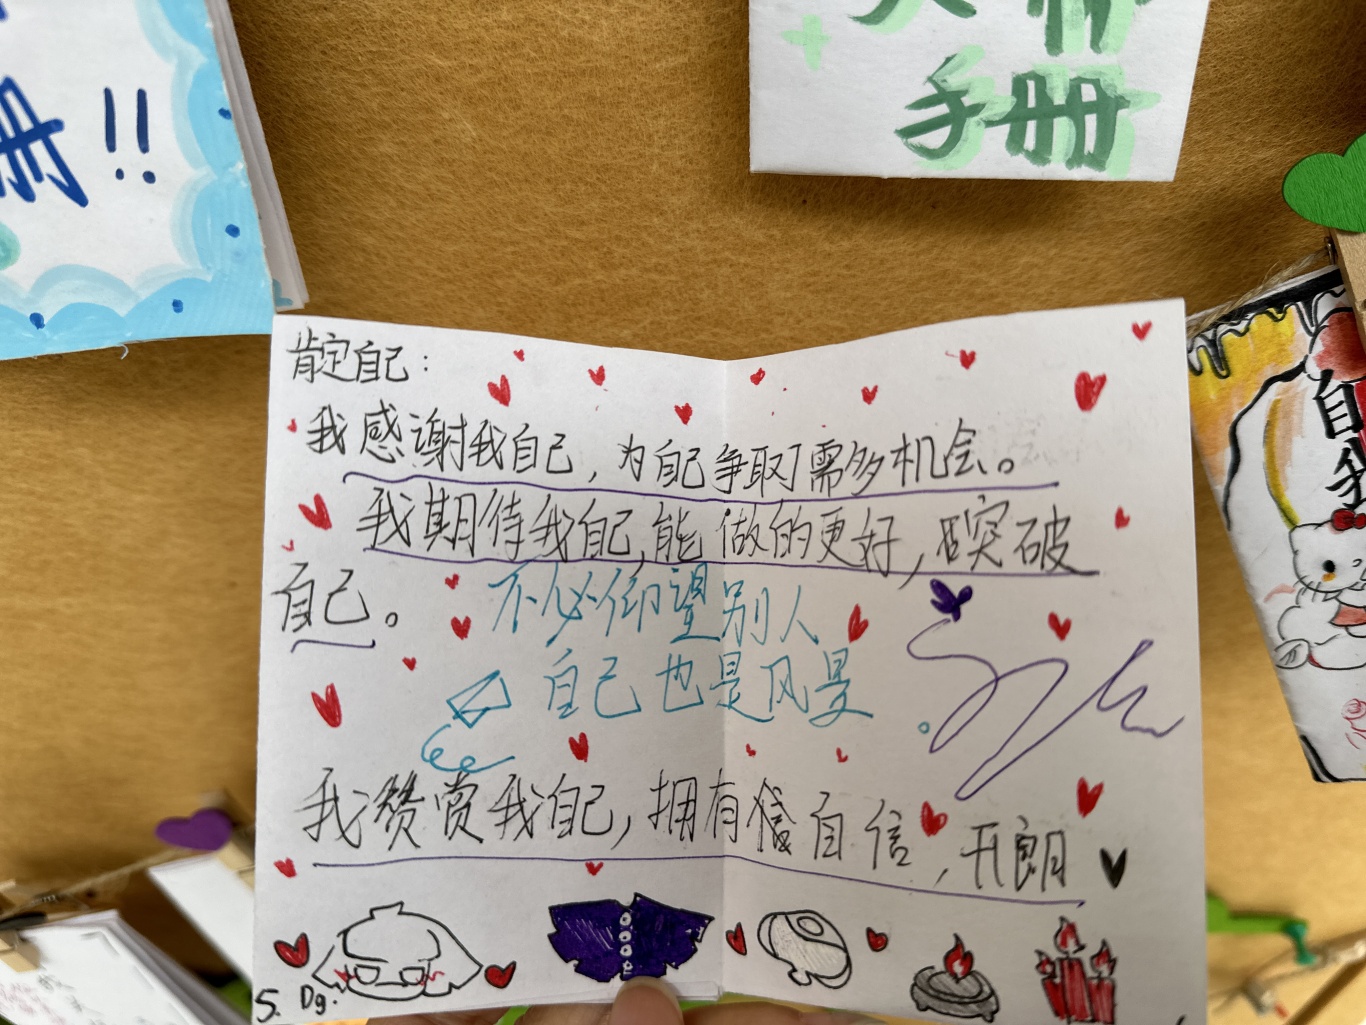 册!!
手册
自我
肯定自己:
我感谢我自己,为自己争取了需多机会。
我期待我自己,能做的更好,突破
自己。
不必仰望别人
自己也是风景。
我赞赏我自己,拥有信自信,开朗
S. Dg.